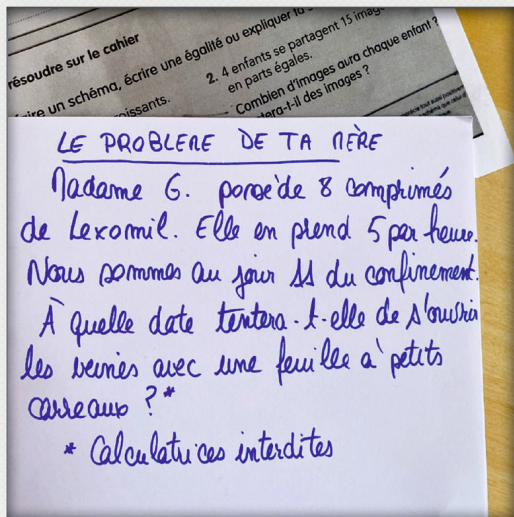 résoudre sur le cahier
ire un schéma, écrire une égalité ou expliquer
oissants.
2. 4 enfants se partagent 15 imag
en parts égales.
Combien d'images aura chaque enfant ?
tera-t-il des images ?
LE PROBLEME DE TA MÈRE
Madame G. possède 8 comprimés
de Lexomil. Elle en prend 5 par heure.
Nous sommes au jour 11 du confinement.
À quelle date tentera-t-elle de s'ouvrir
les veines avec une feuille à petits
carreaux ?*
* Calculatrices interdites